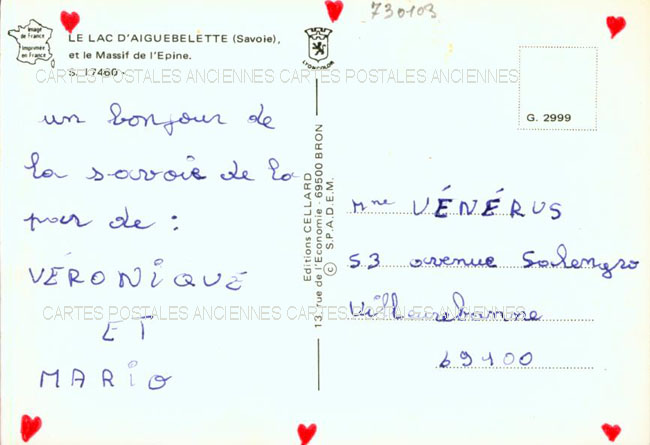 730103
Image
de France
Imprimée
en France
LE LAC D'AIGUEBELETTE (Savoie),
et le Massif de l'Epine.
S. 17460 -
LYONCOLOR
CARTES POSTALES ANCIENNES CARTES POSTALES ANCIENNES CARTES POSTALES ANCIENNES
G. 2999
un bonjour de
la savoie de la
par de :
VÉRONIQUE
ET
MARIO
Editions CELLARD
13, rue de l'Economie - 69500 BRON
© S.P.A.D.E.M.
Mme VÉNÉRUS
53 avenue Salengro
Villeurbanne
69100
CARTES POSTALES ANCIENNES CARTES POSTALES ANCIENNES CARTES POSTALES ANCIENNES